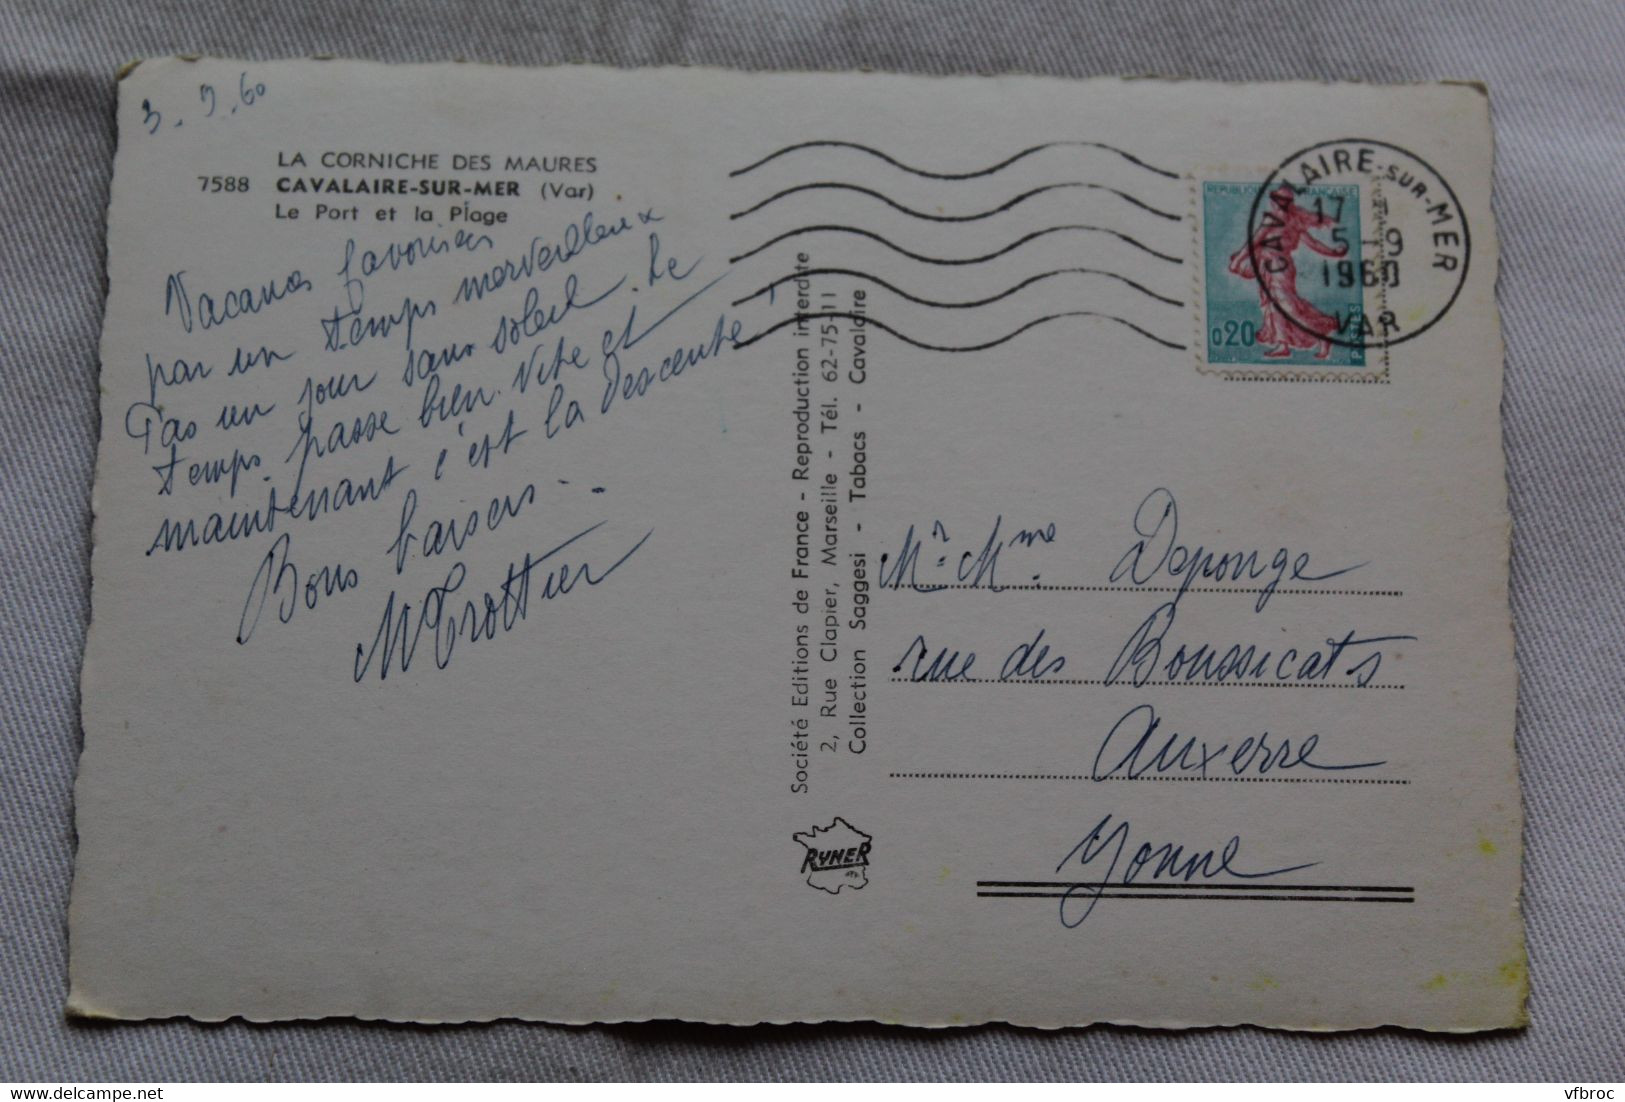 3.9.60
LA CORNICHE DES MAURES
7588 CAVALAIRE-SUR-MER (Var)
Le Port et la Plage
Vacances favorisées
par un temps merveilleux
Pas un jour sans soleil. Le
temps passe bien vite et
maintenant c'est la descente !
Bons baisers..
MTrottier
Société Editions de France - Reproduction interdite
2, Rue Clapier, Marseille - Tél. 62-75-11
Collection Saggesi - Tabacs - Cavalaire
RYNER
REPUBLIQUE FRANÇAISE
0,20
POSTES
CAVALAIRE-SUR-MER
17
5-9
1960
VAR
Mr. Mme Deponge
rue des Boussicats
Auxerre
Yonne
delcampe.net
vfbroc